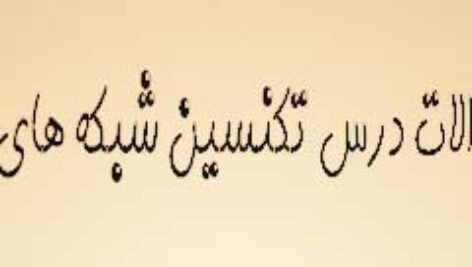 الات درس تکنسین شبکه های